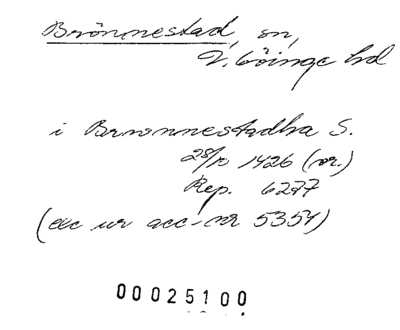 Brönnestad, sn,
V. Göinge hd
i Brwnnestadha S.
28/10 1426 (or.)
Rep. 6277
(exc ur acc-nr 5354)
00025100